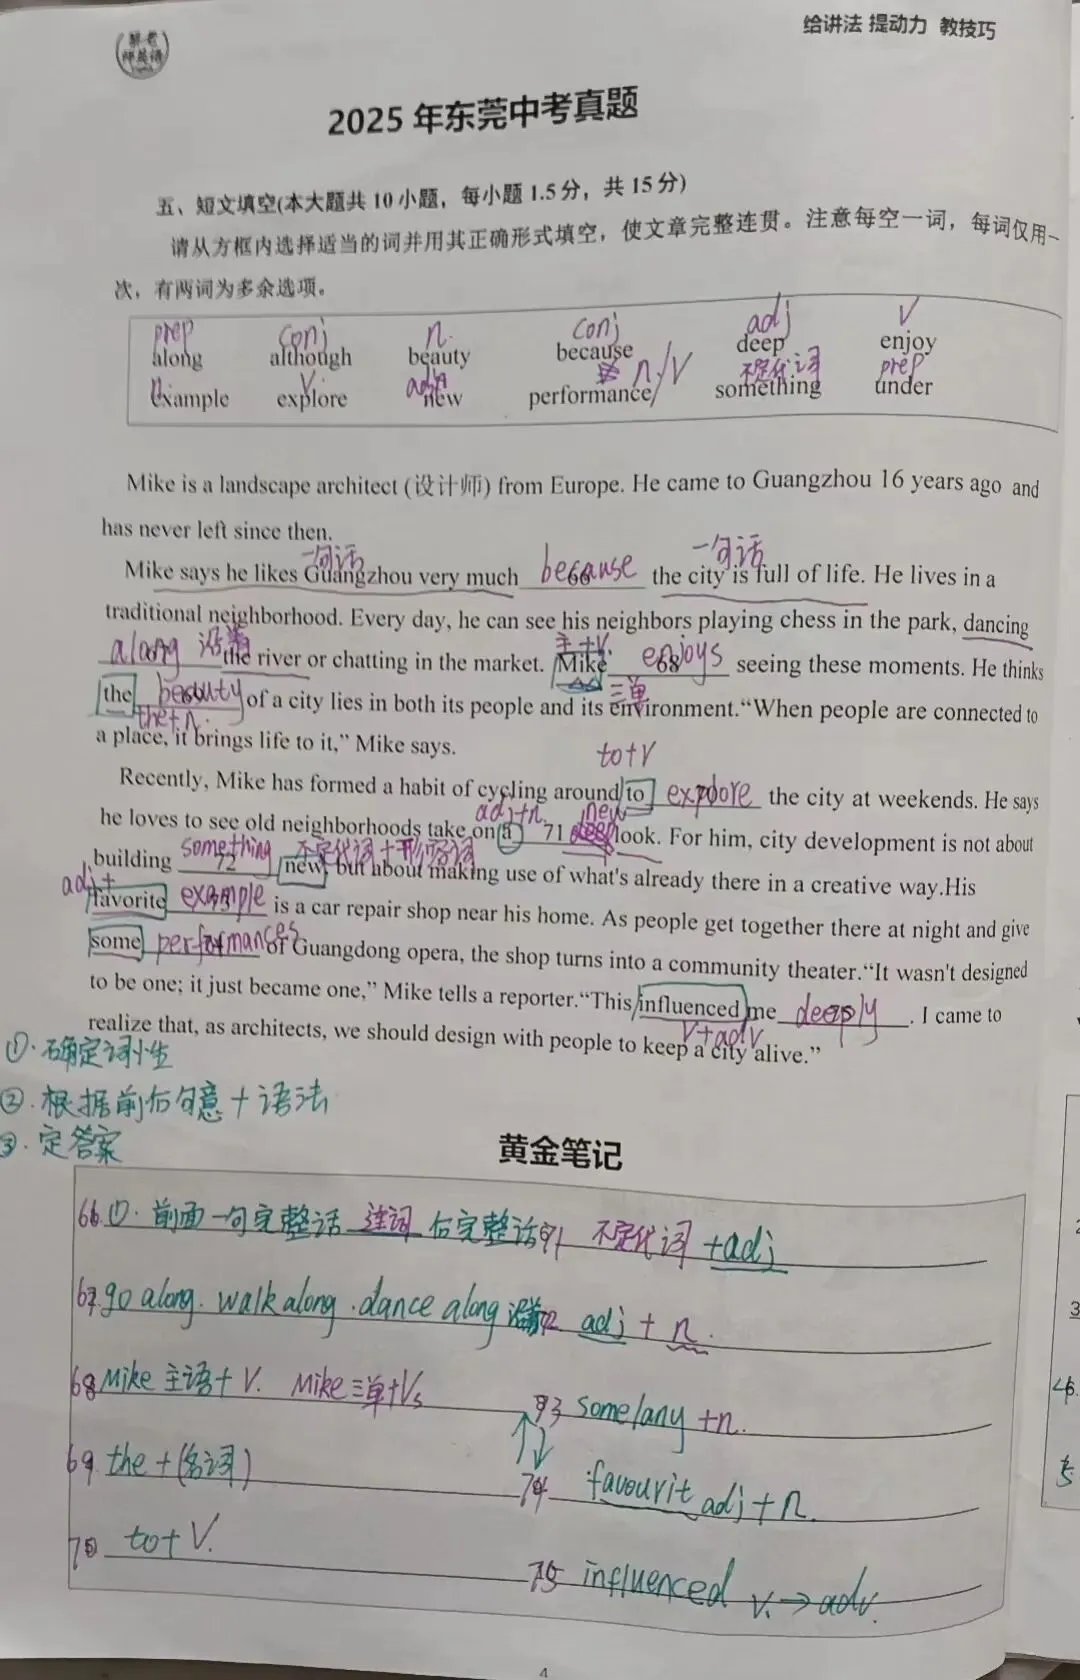 解老
师英语
给讲法 提动力 教技巧
2025 年东莞中考真题
五、短文填空(本大题共 10 小题，每小题 1.5 分，共 15 分)
请从方框内选择适当的词并用其正确形式填空，使文章完整连贯。注意每空一词，每词仅用一
次，有两词为多余选项。
prep conj n. conj adj v
along although beauty because deep enjoy
n v. adj n/v 不定代词 prep
example explore new performance/ something under
Mike is a landscape architect (设计师) from Europe. He came to Guangzhou 16 years ago and
has never left since then.
一句话 一句话
Mike says he likes Guangzhou very much because 66 the city is full of life. He lives in a
traditional neighborhood. Every day, he can see his neighbors playing chess in the park, dancing
along 沿着 the river or chatting in the market. Mike enjoys 68 seeing these moments. He thinks
主+v. 三单
the beauty of a city lies in both its people and its environment.“When people are connected to
the+n.
a place, it brings life to it,” Mike says.
to+V
Recently, Mike has formed a habit of cycling around to explore the city at weekends. He says
adj+n. new
he loves to see old neighborhoods take on a 71 look. For him, city development is not about
something 不定代词+形容词
building 72 new, but about making use of what's already there in a creative way.His
adj+
favorite example is a car repair shop near his home. As people get together there at night and give
some performances of Guangdong opera, the shop turns into a community theater.“It wasn't designed
to be one; it just became one,” Mike tells a reporter.“This influenced me deeply. I came to
v+adv
realize that, as architects, we should design with people to keep a city alive.”
①. 确定词性
②. 根据前后句意+语法
③. 定答案
黄金笔记
66.①. 前面一句完整话 连词 后完整话 71 不定代词 +adj
67.go along. walk along .dance along 沿着 72 adj + n.
68 Mike 主语+ V. Mike 三单+Vs 73 some/any +n.
69. the +(名词) 74 favourit adj+n.
70 to+ V. 75 influenced v.→adv.
4